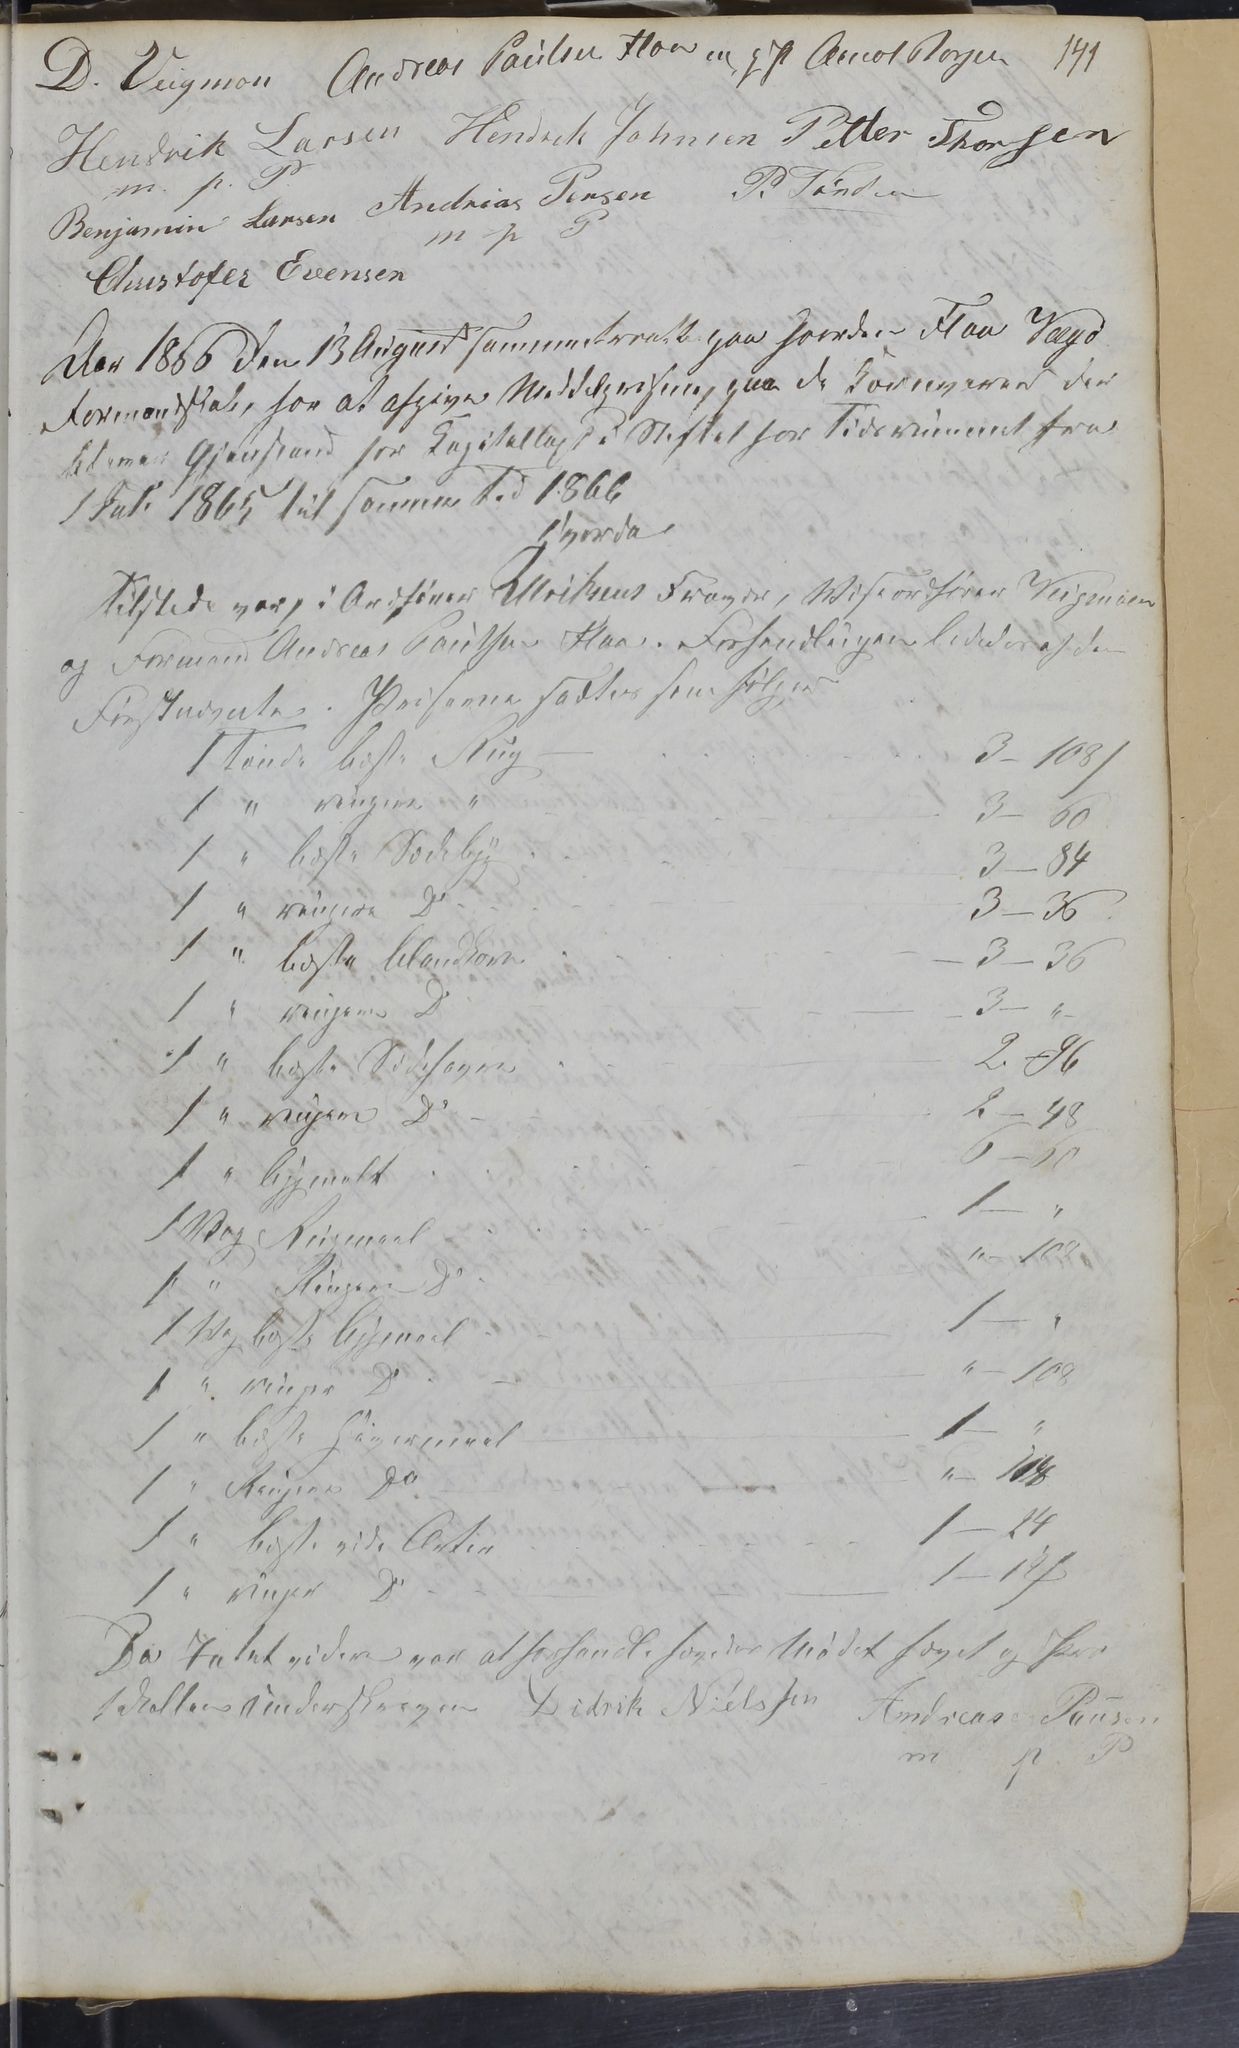 D. Veigmon Andreas Paulsen Floa m. p. P Arnot Borgen 141
Hendrik Larsen Hendrik Johnsen Petter Thorsen
m. p. P.
Benjamin Larsen Andrias Persen P. Tønder
m p P
Christofer Evensen
Aar 1866 den 13 August sammentraadte paa Gaarden Floa Vægø
Formandskab, for at afgive Middelpriserne paa de Kornvarer der
bliver Gjenstand for Kapitelstaxt i Stiftet for Tidsrummet fra
1 Juli 1865 til samme Tid 1866
Hvorda
Tilstede var, Ordfører Ulriksens Fravær, Viseordfører Veigmoen
og Formand Andreas Paulsen Floa. Forhandlingen lededes af den
Førstnævnte. Priserne sattes som følger
1 Tønde beste Rug — 3 — 108 /
1 " ringere " 3 — 60
1 " beste Sædebyg 3 — 84
1 " ringere Do 3 — 36
1 " beste Blandkorn — 3 — 36
1 " ringere Do — 3 — "
1 " beste Sædehavre 2 — 96
1 " ringere Do — 2 — 48
1 " Bygmalt 6 — 60
1 Vog Rugmeel 1 — "
1 " Ringere Do " — 108
1 Vog beste Bygmeel 1 — "
1 " ringer Do " — 108
1 " beste Havremeel 1 — "
1 " Ringere Do " — 108
1 " beste Erter 1 — 24
1 " ringer Do 1 — 12
Da Intet videre var at forhandle hævedes Mødet hævet og Pro
tokollen underskreven Didrik Nielssen Andreas Pausen
m p. P